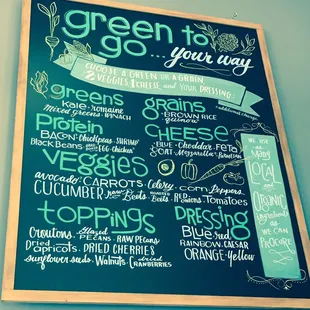 green to
go... your way
CHOOSE A GREEN OR A GRAIN,
2 VEGGIES, 1 CHEESE, and YOUR DRESSING:
greens
kale · romaine
Mixed greens · SPINACH
grains
BROWN RICE
quinoa
Protein
BACON · chickpeas · SHRIMP
Black Beans · EGG · chicken
CHEESE
BLUE · Cheddar · FETA
Fort. Mozzarella · Parmesan
Veggies
avocado · CARROTS · Celery · corn · Peppers
CUCUMBER · raw Beets · Roasted Beets · RED ONIONS · TOMATOES
toppings
Croutons, Glazed PECANS, RAW PECANS
Dried Apricots, DRIED CHERRIES
sunflower seeds, Walnuts, dried CRANBERRIES
DRESSING
BLUE · red
RAINBOW · CAESAR
ORANGE · yellow
WE USE
as
Many
LOCAL
and
ORGANIC
ingredients
as WE CAN
PROCURE